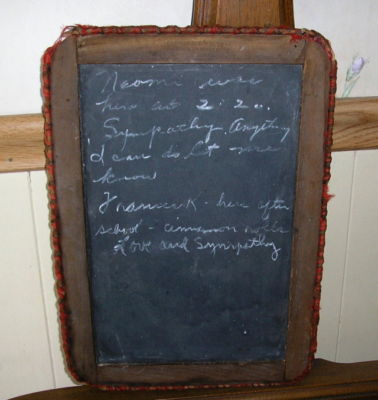 Naomi was
here at 2:20.
Sympathy. Anything
I can do let me
know
- here after
school - cinnamon rolls
Love and Sympathy